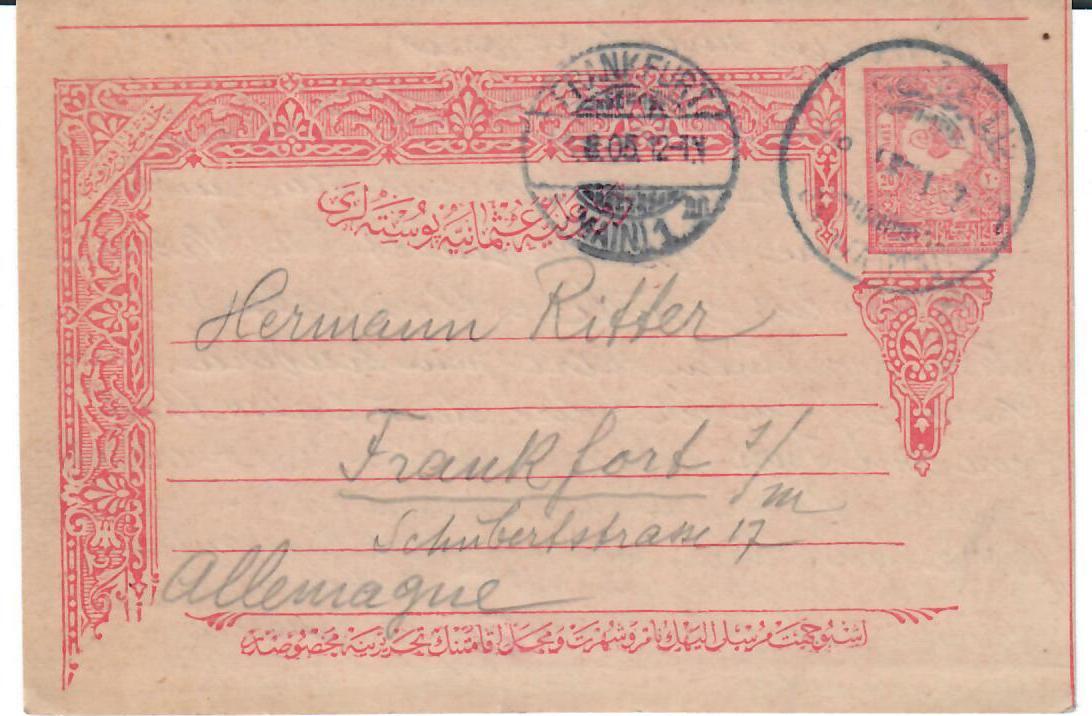 FRANKFURT
05 12-1N
(MAIN) 1
عثمانیه پوسته لری
Hermann Ritter
Frankfort s/m
Schubertstrasse 17
Allemagne
اشبو جهت مرسل الیهك نام و شهرت و محل اقامتنك تحریرینه مخصوصدر